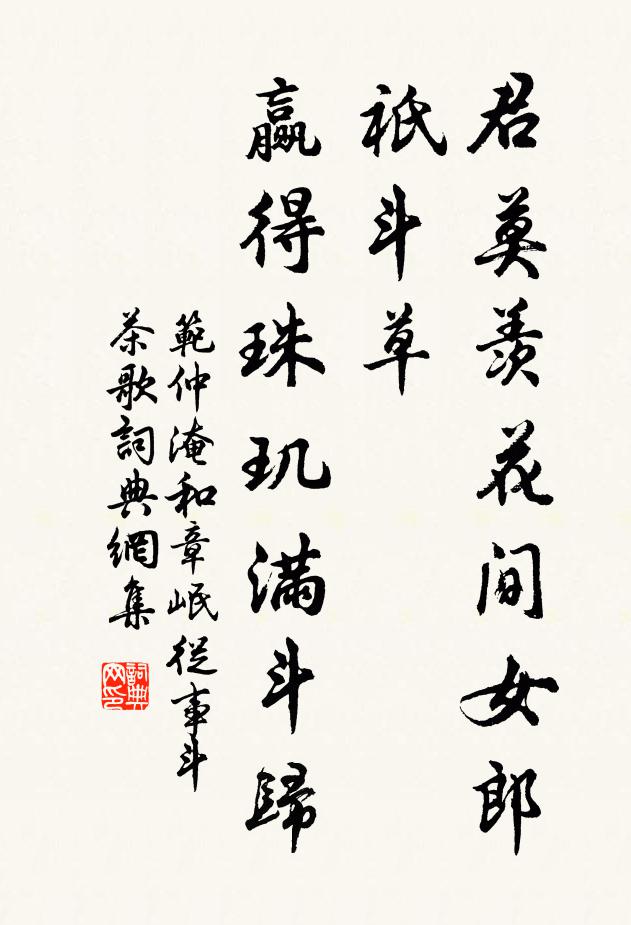 君莫羨花間女郎
祇斗草
贏得珠玑滿斗歸
範仲淹和章岷從事斗
茶歌詞典網集
詞典
网印